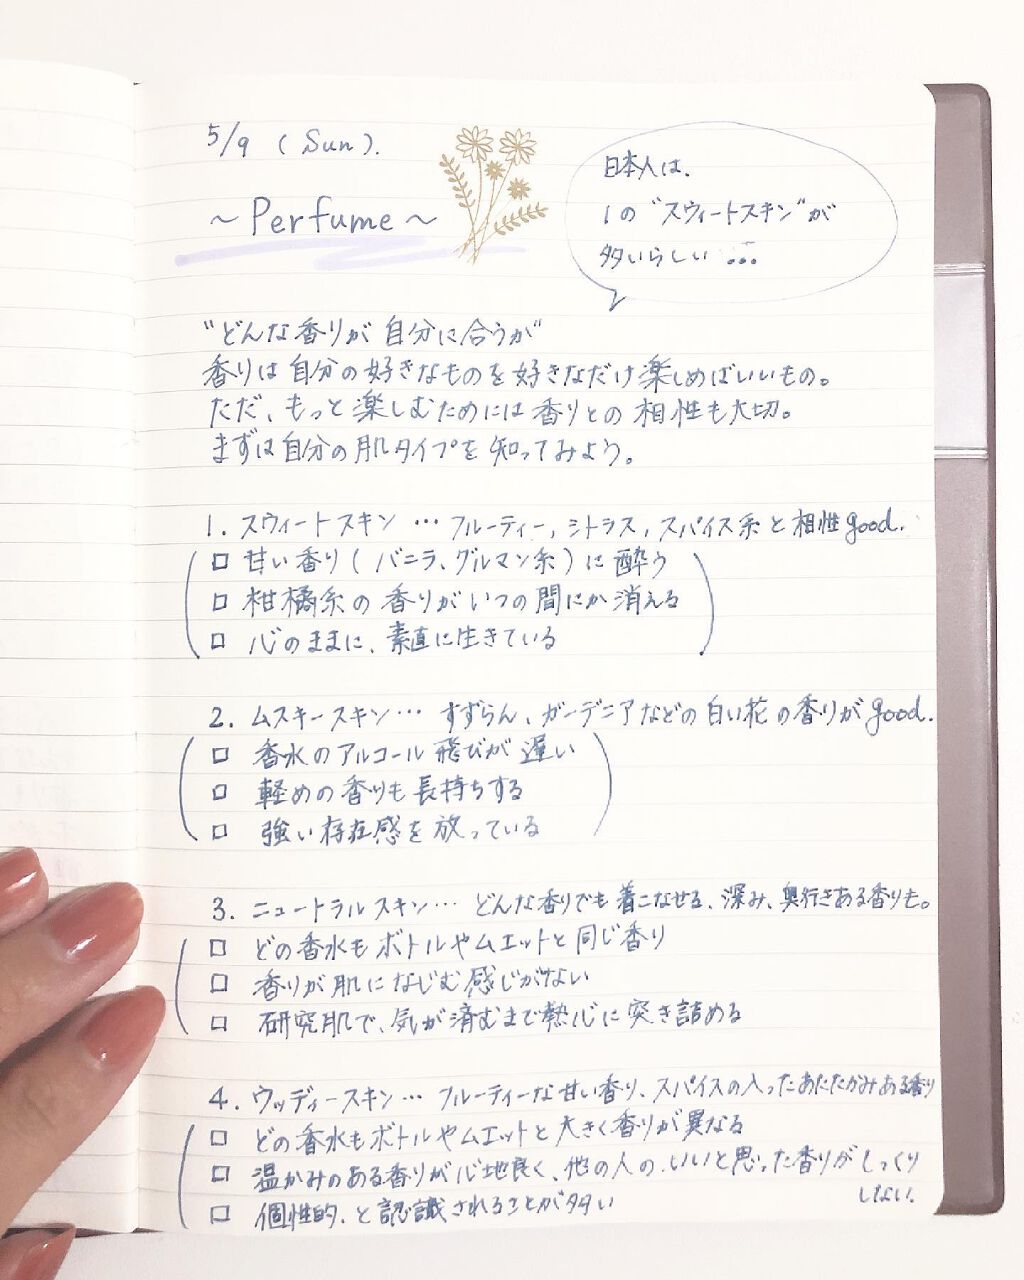 5/9 (Sun).
~ Perfume ~
日本人は、
1の"スウィートスキン"が
多いらしい…
"どんな香りが自分に合うか"
香りは自分の好きなものを好きなだけ楽しめばいいもの。
ただ、もっと楽しむためには香りとの相性も大切。
まずは自分の肌タイプを知ってみよう。
1. スウィートスキン … フルーティー, シトラス, スパイス系と相性good.
□ 甘い香り(バニラ、グルマン系)に酔う
□ 柑橘系の香りがいつの間にか消える
□ 心のままに、素直に生きている
2. ムスキースキン… すずらん、ガーデニアなどの白い花の香りがgood.
□ 香水のアルコール飛びが遅い
□ 軽めの香りも長持ちする
□ 強い存在感を放っている
3. ニュートラルスキン… どんな香りでも着こなせる、深み、奥行きある香りも。
□ どの香水もボトルやムエットと同じ香り
□ 香りが肌になじむ感じがない
□ 研究肌で、気が済むまで熱心に突き詰める
4. ウッディースキン… フルーティーな甘い香り、スパイスの入ったあたたかみある香り
□ どの香水もボトルやムエットと大きく香りが異なる
□ 温かみのある香りが心地良く、他の人の、いいと思った香りがしっくり
しない。
□ 個性的、と認識されることが多い